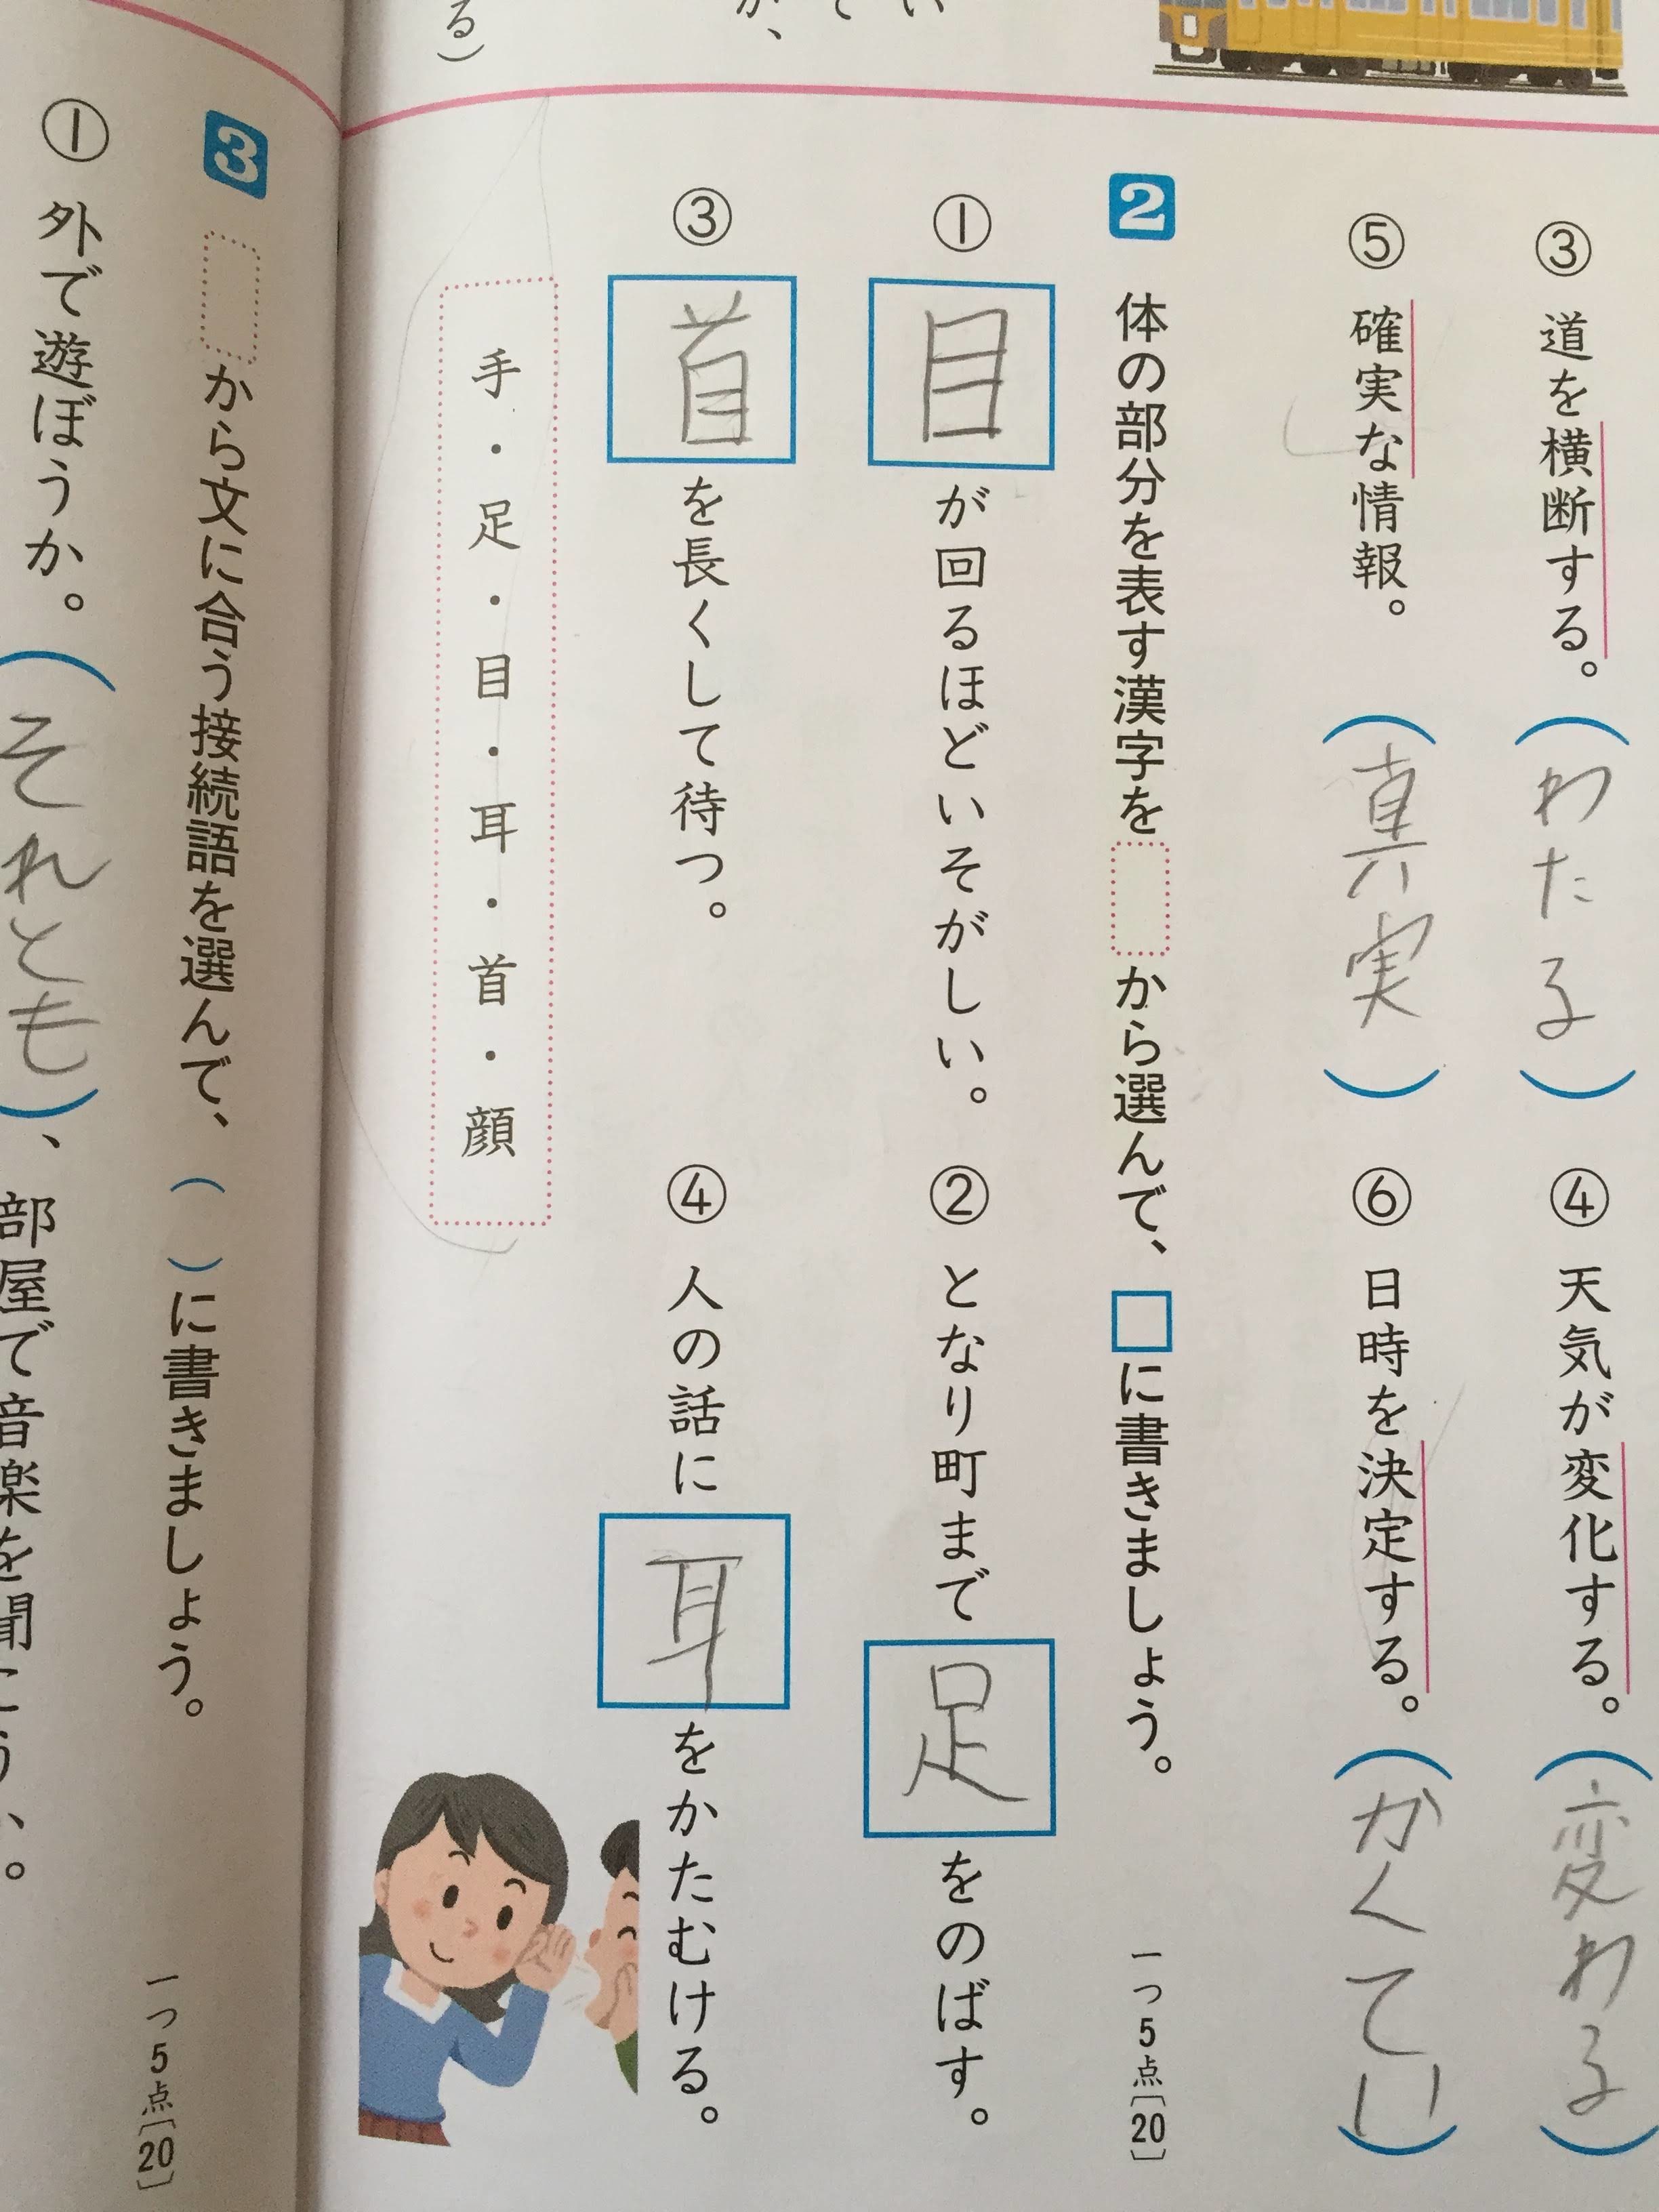 ③ 道を横断する。（わたる）
④ 天気が変化する。（変わる）
⑤ 確実な情報。（真実）
⑥ 日時を決定する。（かくてい）
2 体の部分を表す漢字を から選んで、□に書きましょう。 一つ5点〔20〕
① 目が回るほどいそがしい。
② となり町まで足をのばす。
③ 首を長くして待つ。
④ 人の話に耳をかたむける。
手・足・目・耳・首・顔
る）
3 から文に合う接続語を選んで、（ ）に書きましょう。 一つ5点〔20〕
① 外で遊ぼうか。（それとも）、部屋で音楽を聞こう